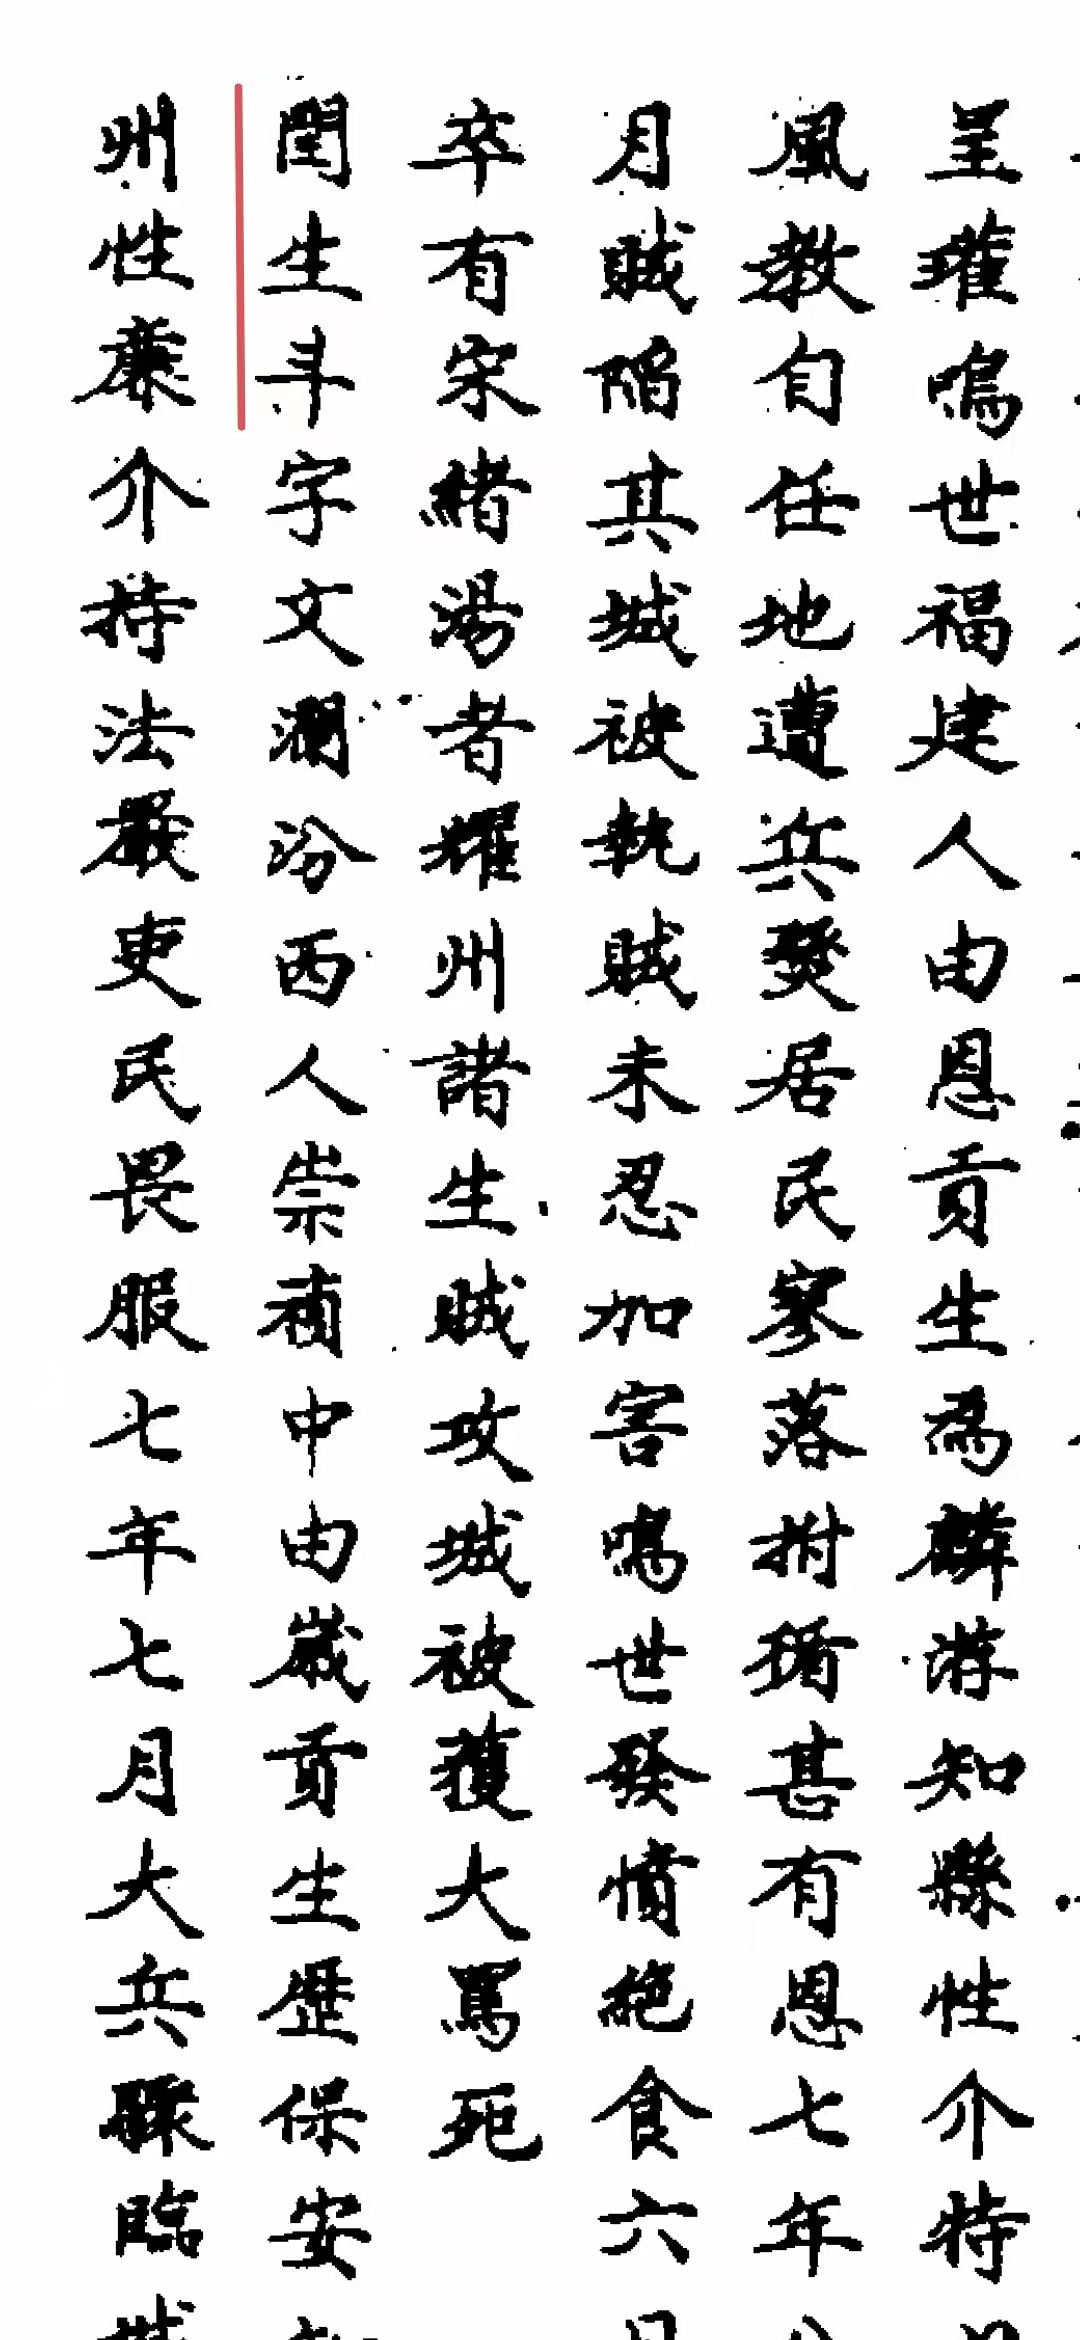 呈璀鳴世福建人由恩貢生為麟游知縣性介特
風教自任地遭兵燹居民寥落拊循甚有恩七年
月賊陷其城被執賊未忍加害鳴世發憤絶食六
卒有宋緒湯者耀州諸生賊攻城被獲大罵死
閏生斗字文瀾汾西人崇禎中由歲貢生歷保安
州性廉介持法嚴吏民畏服七年七月大兵驟臨城